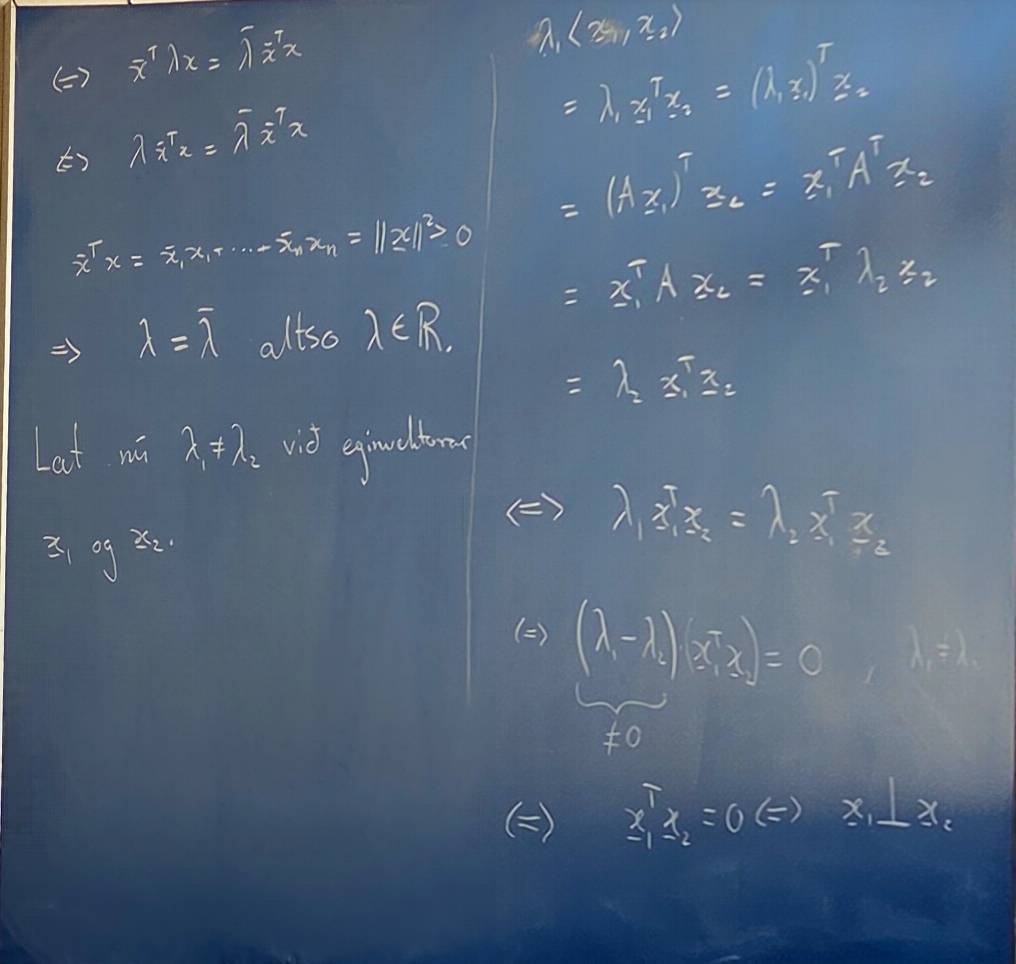 (=> x̄ᵀλx = λ̄ x̄ᵀx
<=> λx̄ᵀx = λ̄ x̄ᵀx
x̄ᵀx = x̄₁x₁ + ··· + x̄ₙxₙ = ||x̲||² > 0
=> λ = λ̄ altso λ ∈ ℝ.
Lat nú λ₁ ≠ λ₂ við eginvektorar
x̲₁ og x̲₂.
λ₁⟨x̲₁, x̲₂⟩
= λ₁ x̲₁ᵀx̲₂ = (λ₁x̲₁)ᵀ x̲₂
= (Ax̲₁)ᵀ x̲₂ = x̲₁ᵀAᵀx̲₂
= x̲₁ᵀ A x̲₂ = x̲₁ᵀ λ₂ x̲₂
= λ₂ x̲₁ᵀx̲₂
<=> λ₁ x̲₁ᵀx̲₂ = λ₂ x̲₁ᵀ x̲₂
(=) (λ₁ - λ₂)(x̲₁ᵀx̲₂) = 0 , λ₁ ≠ λ₂
≠0
(=) x̲₁ᵀx̲₂ = 0 (=) x̲₁ ⊥ x̲₂